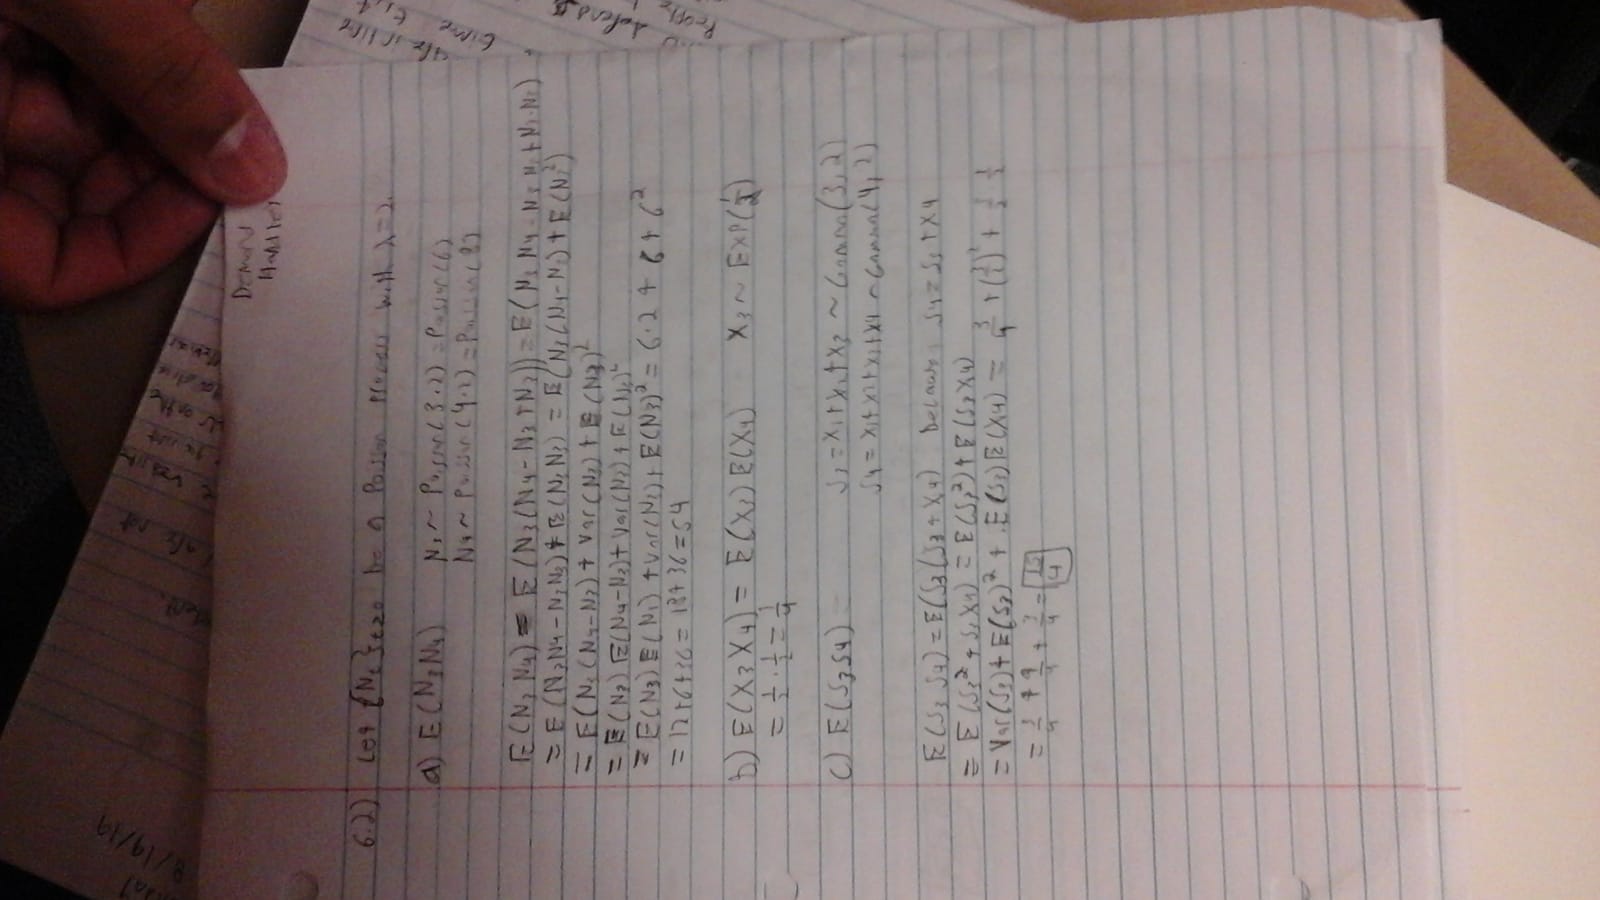 8/19/19
6.2) Let {N_t}_{t≥0} be a Poisson Process with λ=2.
a) E(N_3N_4) N_3 ~ Poisson(3·2) = Poisson(6)
N_4 ~ Poisson(4·2) = Poisson(8)
E(N_3 N_4) = E(N_3(N_4-N_3+N_3)) = E(N_3 N_4 - N_3 N_3 + N_3·N_3)
= E(N_3N_4-N_3N_3) + E(N_3N_3) = E(N_3(N_4-N_3) + E(N_3^2)
= E(N_3(N_4-N_3) + Var(N_3) + E(N_3)^2
= E(N_3) E(N_4-N_3) + Var(N_3) + E(N_3)^2
= E(N_3) E(N_1) + Var(N_3) + E(N_3)^2 = 6·2 + 6 + 6^2
= 12+6+36 = 18+36 = 54
b) E(X_3X_4) = E(X_3) E(X_4) X_3 ~ EXP(1/2)
= 1/2 · 1/2 = 1/4
c) E(S_3S_4) S_3 = X_1+X_2+X_3 ~ Gamma(3,2)
S_4 = X_1+X_2+X_3+X_4 ~ Gamma(4,2)
E(S_3 S_4) = E(S_3(S_3+X_4) because S_4 = S_3 + X_4
= E(S_3^2 + S_3X_4) = E(S_3^2) + E(S_3X_4)
= Var(S_3) + E(S_3)^2 + E(S_3)E(X_4) = 3/4 + (3/2)^2 + 3/2 1/2
= 3/4 + 9/4 + 3/4 = 15/4